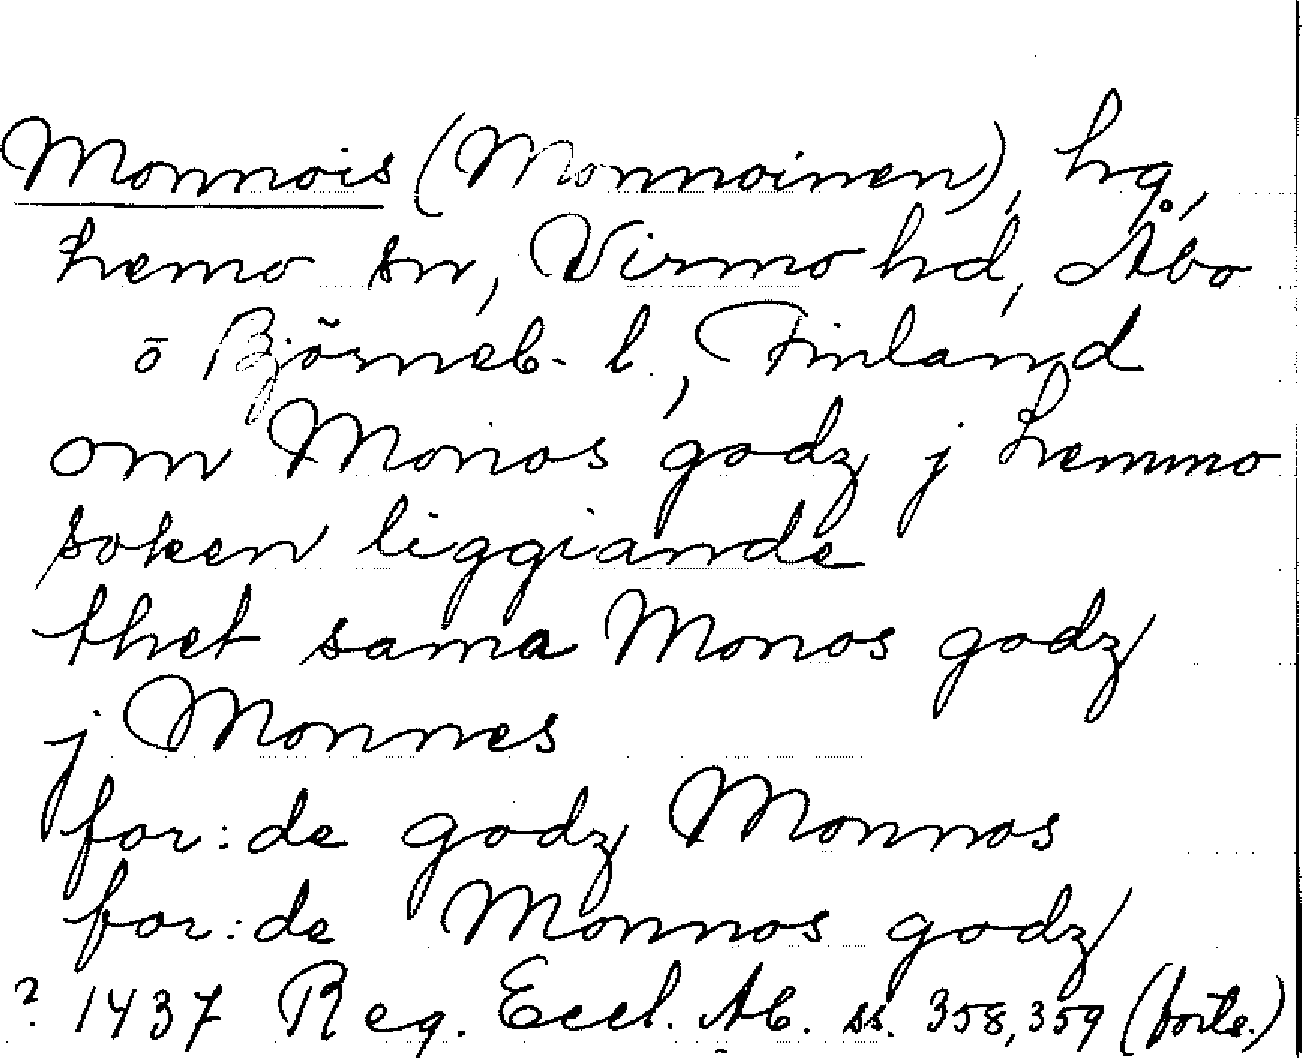 Monnois (Monnoinen), hg,
Lemo sn, Virmo hd, Åbo
o Björneb. l., Finland
om Monos godz j Lemmo
soken liggiande
thet sama Monos godz
j Monnes
for:de godz Monnos
for:de Monnos godz
? 1437 Reg. Eccl. Ab. ss. 358, 359 (forts.)